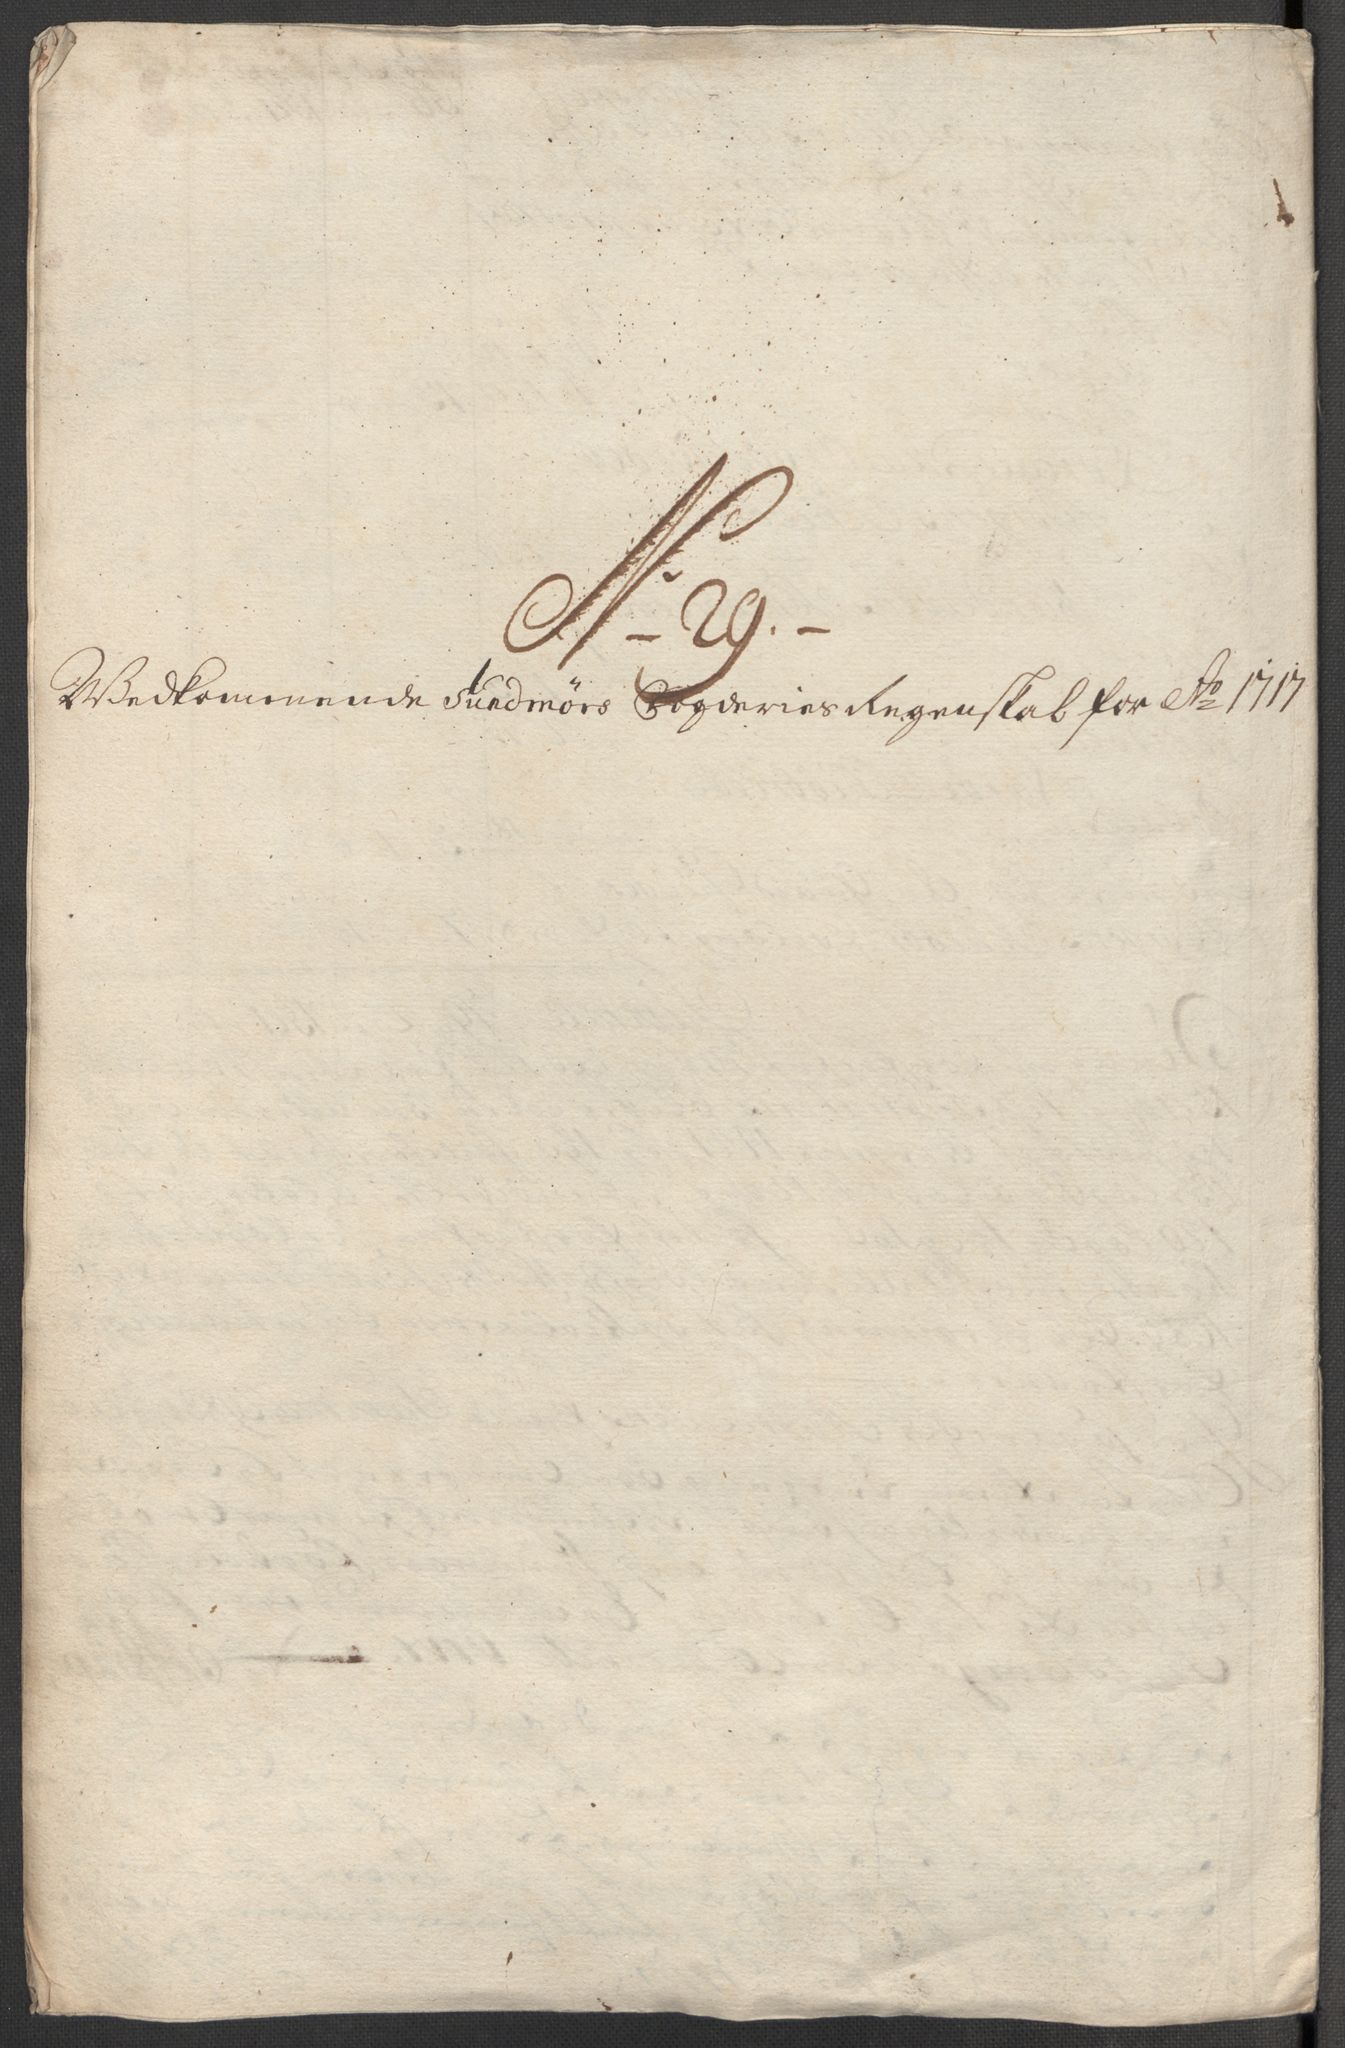 N: 29.
Wedkommende Sundmørs Fogderies Regenskab for Ao 1717